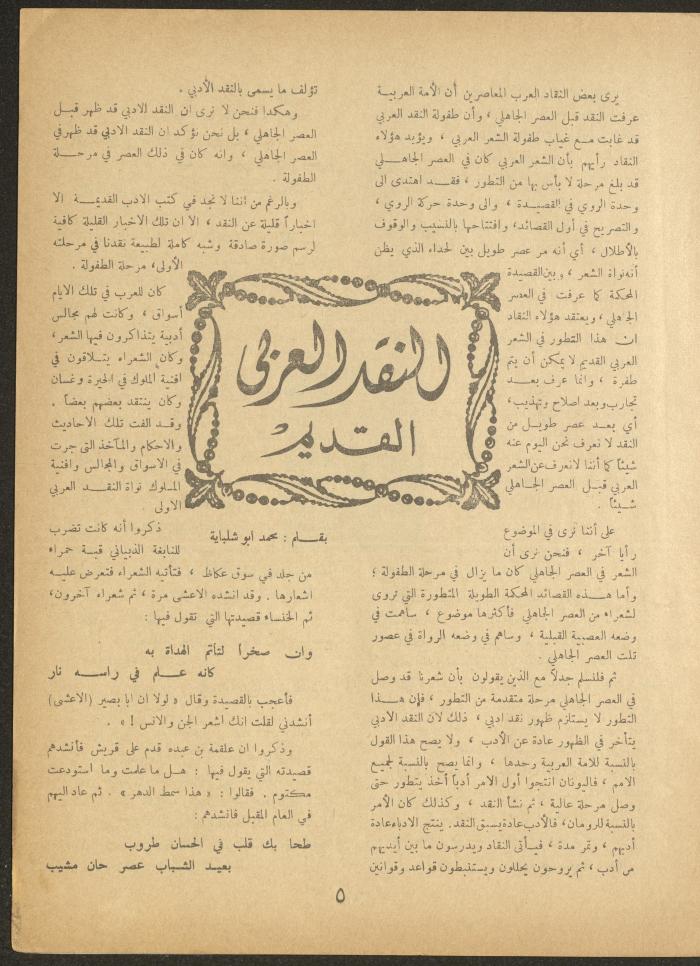 النقد العربي
القديم
بقلم : محمد ابو شلباية
يرى بعض النقاد العرب المعاصرين أن الأمة العربية
عرفت النقد قبل العصر الجاهلي ، وأن طفولة النقد العربي
قد غابت مع غياب طفولة الشعر العربي ، ويؤيد هؤلاء
النقاد رأيهم بأن الشعر العربي كان في العصر الجاهلي
قد بلغ مرحلة لا بأس بها من التطور ، فقد اهتدى الى
وحدة الروي في القصيدة ، والى وحدة حركة الروي ،
والتصريح في أول القصائد، وافتتاحها بالنسيب والوقوف
بالأطلال ، أي أنه مر عصر طويل بين الحداء الذي يظن
أنه نواة الشعر ، وبين القصيدة
المحكمة كما عرفت في العصر
الجاهلي ، ويعتقد هؤلاء النقاد
ان هذا التطور في الشعر
العربي القديم لا يمكن أن يتم
طفرة ، وانما عرف بعد
تجارب وبعد اصلاح وتهذيب،
أي بعد عصر طويل من
النقد لا نعرف نحن اليوم عنه
شيئاً كما أننا لا نعرف عن الشعر
العربي قبل العصر الجاهلي
شيئاً .
على أننا نرى في الموضوع
رأيا آخر ، فنحن نرى أن
الشعر في العصر الجاهلي كان ما يزال في مرحلة الطفولة ؛
وأما هذه القصائد المحكمة الطويلة المتطورة التي تروى
لشعراء من العصر الجاهلي فأكثرها موضوع ، ساهمت في
وضعه العصبية القبلية ، وساهم في وضعه الرواة في عصور
تلت العصر الجاهلي .
ثم فلنسلم جدلاً مع الذين يقولون بأن شعرنا قد وصل
في العصر الجاهلي مرحلة متقدمة من التطور ، فإن هذا
التطور لا يستلزم ظهور نقد ادبي ، ذلك لأن النقد الادبي
يتأخر في الظهور عادة عن الأدب ، ولا يصح هذا القول
بالنسبة للامة العربية وحدها ، وانما يصح بالنسبة لجميع
الامم ، فاليونان انتجوا أول الامر أدباً أخذ يتطور حتى
وصل مرحلة عالية ، ثم نشأ النقد ، وكذلك كان الأمر
بالنسبة للرومان، فالأدب عادة يسبق النقد. ينتج الادباء عادة
أدبهم ، وتمر مدة ، فيأتي النقاد ويدرسون ما بين أيديهم
من أدب ، ثم يروحون يحللون ويستنبطون قواعد وقوانين
تؤلف ما يسمى بالنقد الأدبي .
وهكذا فنحن لا نرى ان النقد الادبي قد ظهر قبل
العصر الجاهلي ، بل نحن نؤكد ان النقد الادبي قد ظهر في
العصر الجاهلي ، وانه كان في ذلك العصر في مرحلة
الطفولة .
وبالرغم من أننا لا نجد في كتب الادب القديمة الا
اخباراً قليلة عن النقد ، الا ان تلك الاخبار القليلة كافية
لرسم صورة صادقة وشبه كاملة لطبيعة نقدنا في مرحلته
الأولى، مرحلة الطفولة .
كان للعرب في تلك الايام
أسواق ، وكانت لهم مجالس
أدبية يتذاكرون فيها الشعر،
وكان الشعراء يتلاقون في
افنية الملوك في الحيرة وغسان
وكان ينتقد بعضهم بعضاً .
وقد الفت تلك الأحاديث
والاحكام والمآخذ التي جرت
في الاسواق والمجالس وافنية
الملوك نواة النقد العربي
الاولى .
ذكروا أنه كانت تضرب
للنابغة الذبياني قبة حمراء
من جلد في سوق عكاظ ، فتأتيه الشعراء فتعرض عليه
اشعارها . وقد انشده الاعشى مرة ، ثم شعراء آخرون،
ثم الخنساء قصيدتها التي تقول فيها :
وان صخراً لتأتم الهداة به
كأنه علم في رأسه نار
فأعجب بالقصيدة وقال « لولا ان ابا بصير (الاعشى)
أنشدني لقلت انك اشعر الجن والانس ! » .
وذكروا ان علقمة بن عبده قدم على قريش فأنشدهم
قصيدته التي يقول فيها : هل ما علمت وما استودعت
مكتوم . فقالوا : « هذا سمط الدهر » . ثم عاد اليهم
في العام المقبل فانشدهم :
طحا بك قلب في الحسان طروب
بعيد الشباب عصر حان مشيب
٥